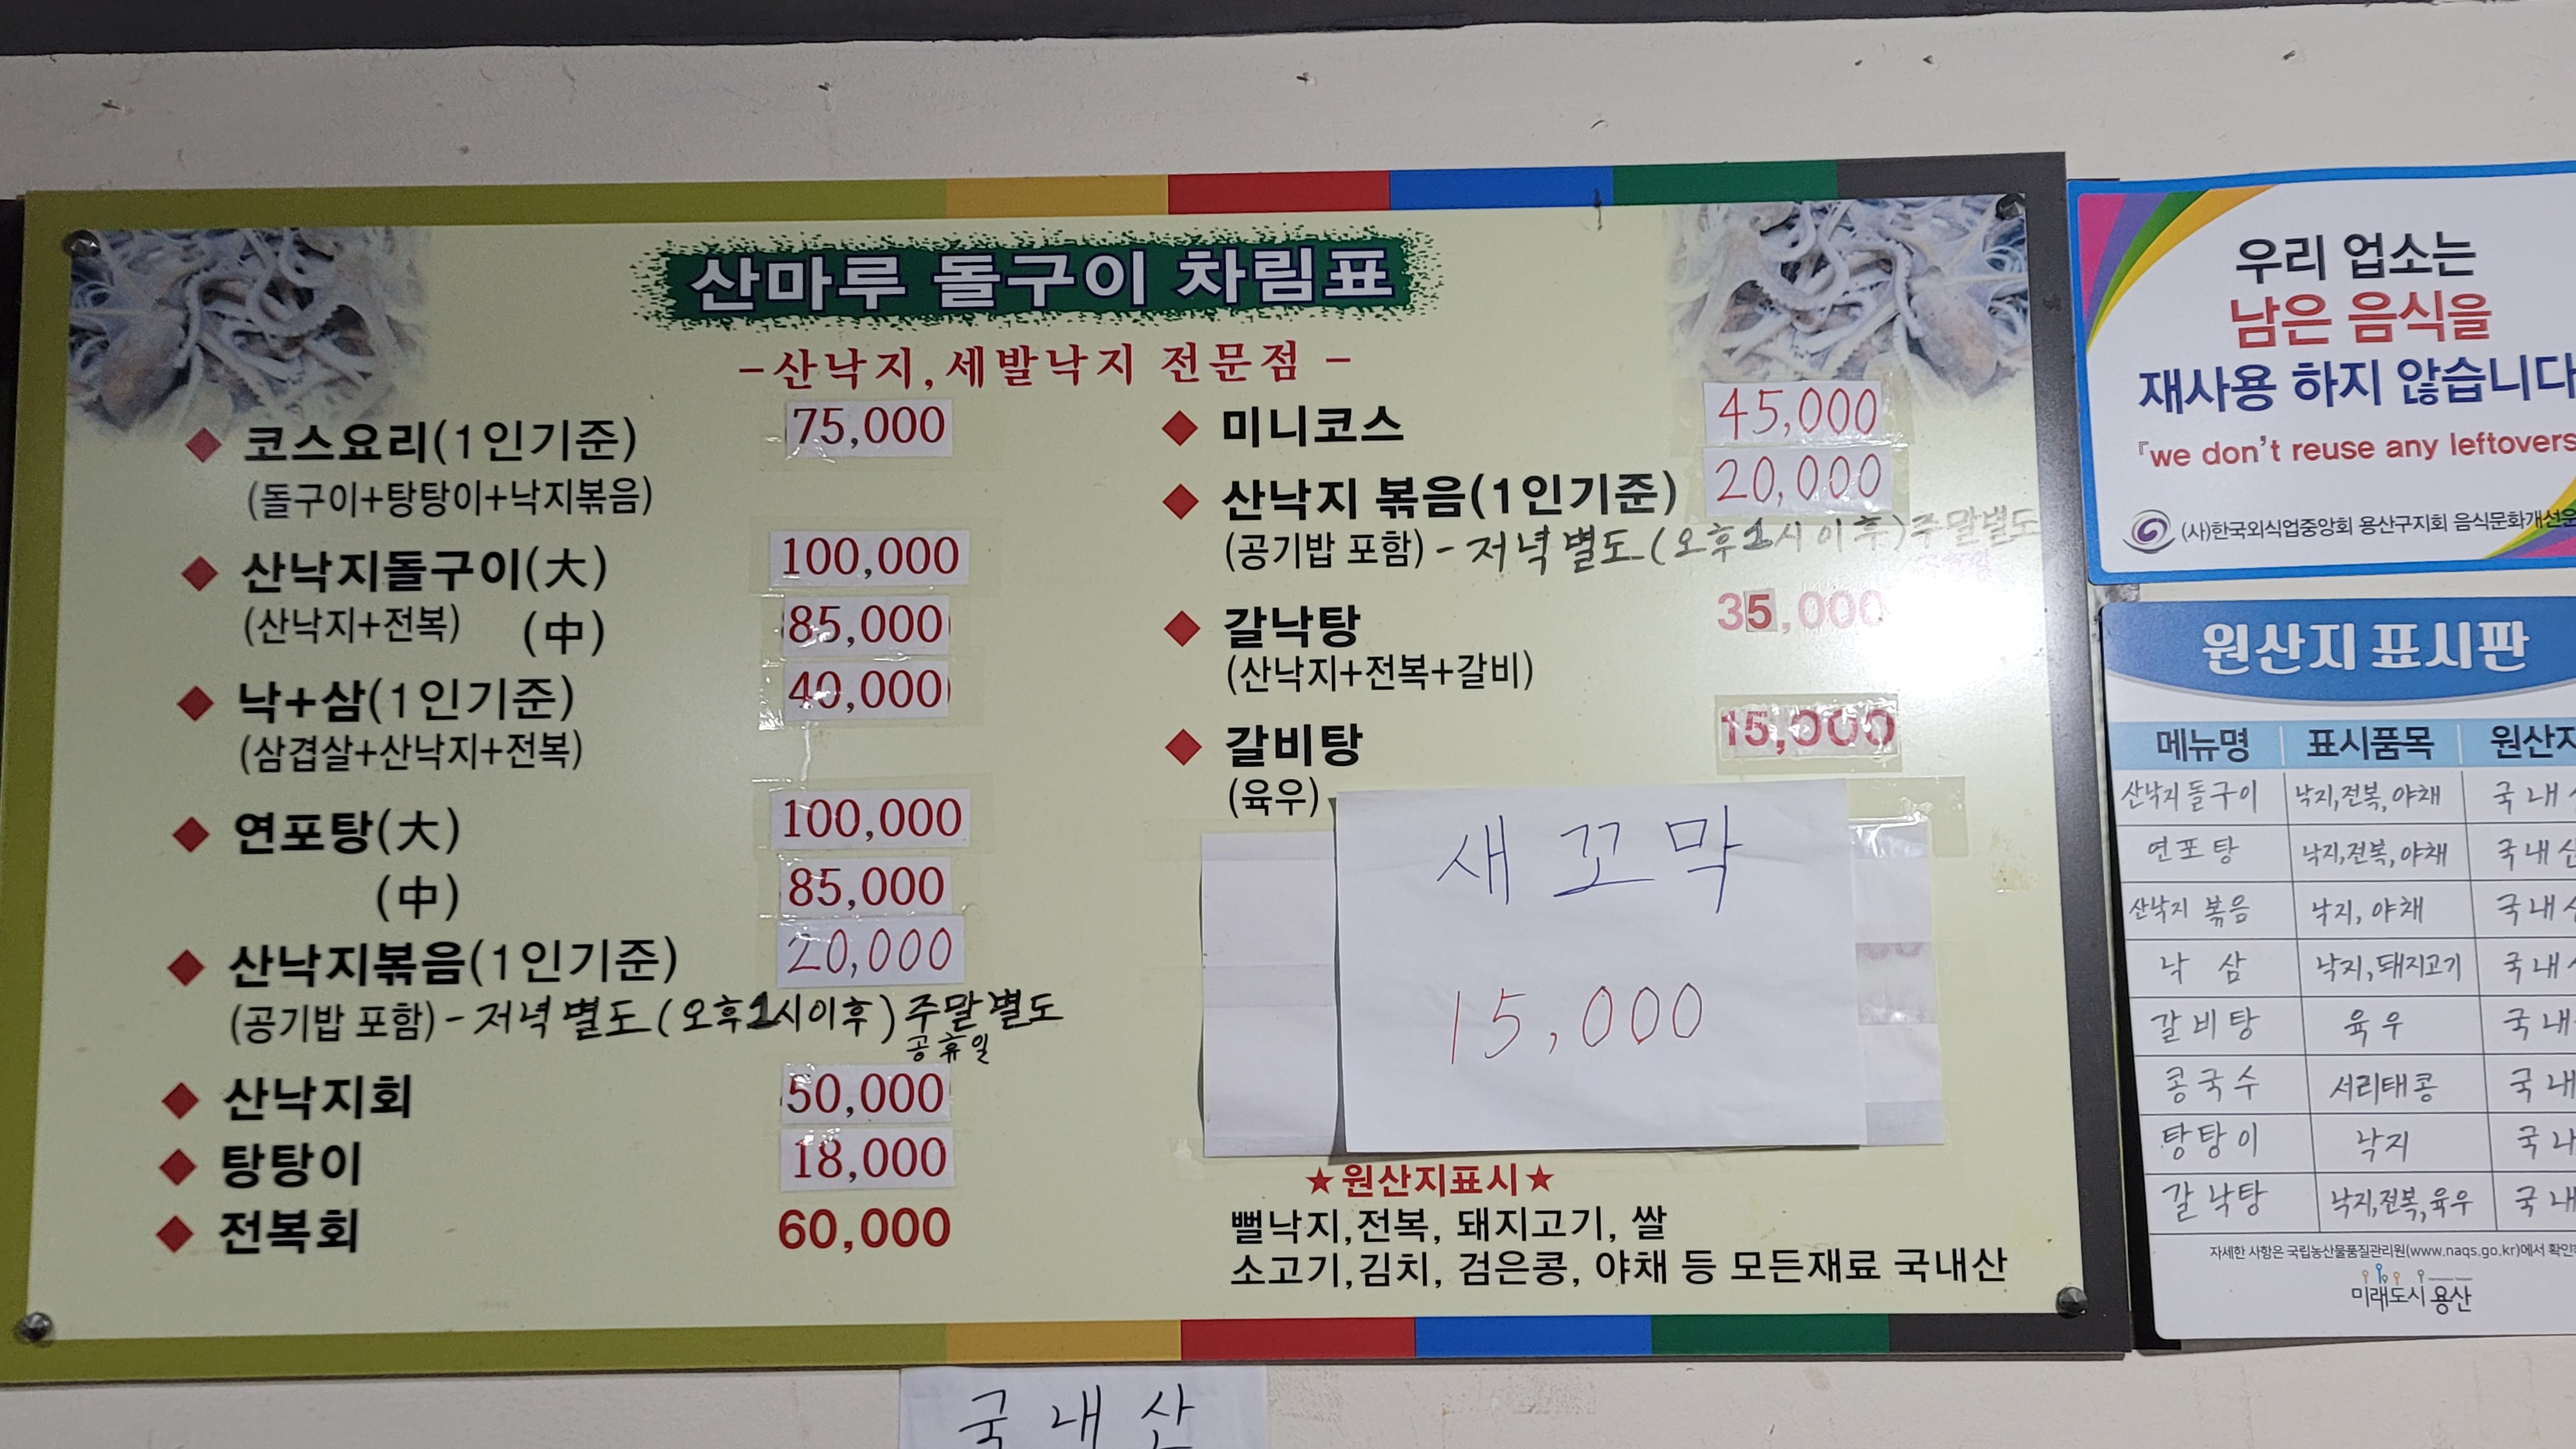 산마루 돌구이 차림표
-산낙지,세발낙지 전문점-
코스요리(1인기준) 75,000
(돌구이+탕탕이+낙지볶음)
산낙지돌구이(大) 100,000
(산낙지+전복) (中) 85,000
낙+삼(1인기준) 40,000
(삼겹살+산낙지+전복)
연포탕(大) 100,000
(中) 85,000
산낙지볶음(1인기준) 20,000
(공기밥 포함)-저녁별도(오후1시이후)주말별도
공휴일
산낙지회 50,000
탕탕이 18,000
전복회 60,000
미니코스 45,000
산낙지 볶음(1인기준) 20,000
(공기밥 포함)-저녁별도(오후1시이후)주말별도
갈낙탕 35,000
(산낙지+전복+갈비)
갈비탕 15,000
(육우)
새꼬막
15,000
★원산지표시★
뻘낙지,전복, 돼지고기, 쌀
소고기,김치, 검은콩, 야채 등 모든재료 국내산
국내산
우리 업소는
남은 음식을
재사용 하지 않습니다
『we don't reuse any leftovers
(사)한국외식업중앙회 용산구지회 음식문화개선운
원산지 표시판
메뉴명 표시품목 원산지
산낙지돌구이 낙지,전복,야채 국내
연포탕 낙지,전복,야채 국내산
산낙지 볶음 낙지, 야채 국내
낙 삼 낙지,돼지고기 국내
갈비탕 육우 국내
콩국수 서리태콩 국내
탕탕이 낙지 국내
갈낙탕 낙지,전복,육우 국내
자세한 사항은 국립농산물품질관리원(www.naqs.go.kr)에서 확인
미래도시 용산